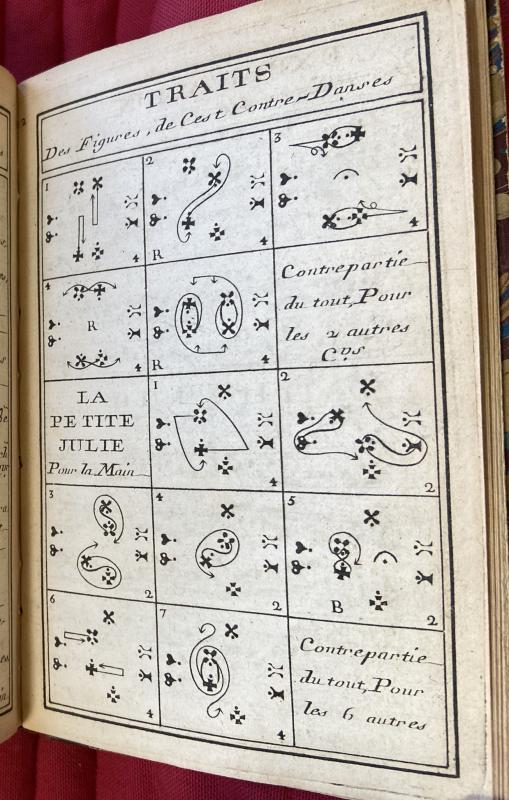 TRAITS
Des Figures, de Cest Contre-Danses
1
4
2
R
4
3
4
4
R
R
4
Contrepartie
du tout, Pour
les 2 autres
Cps
LA
PETITE
JULIE
Pour la Main
1
4
2
2
3
2
4
2
5
B
2
6
4
7
4
Contrepartie
du tout, Pour
les 6 autres